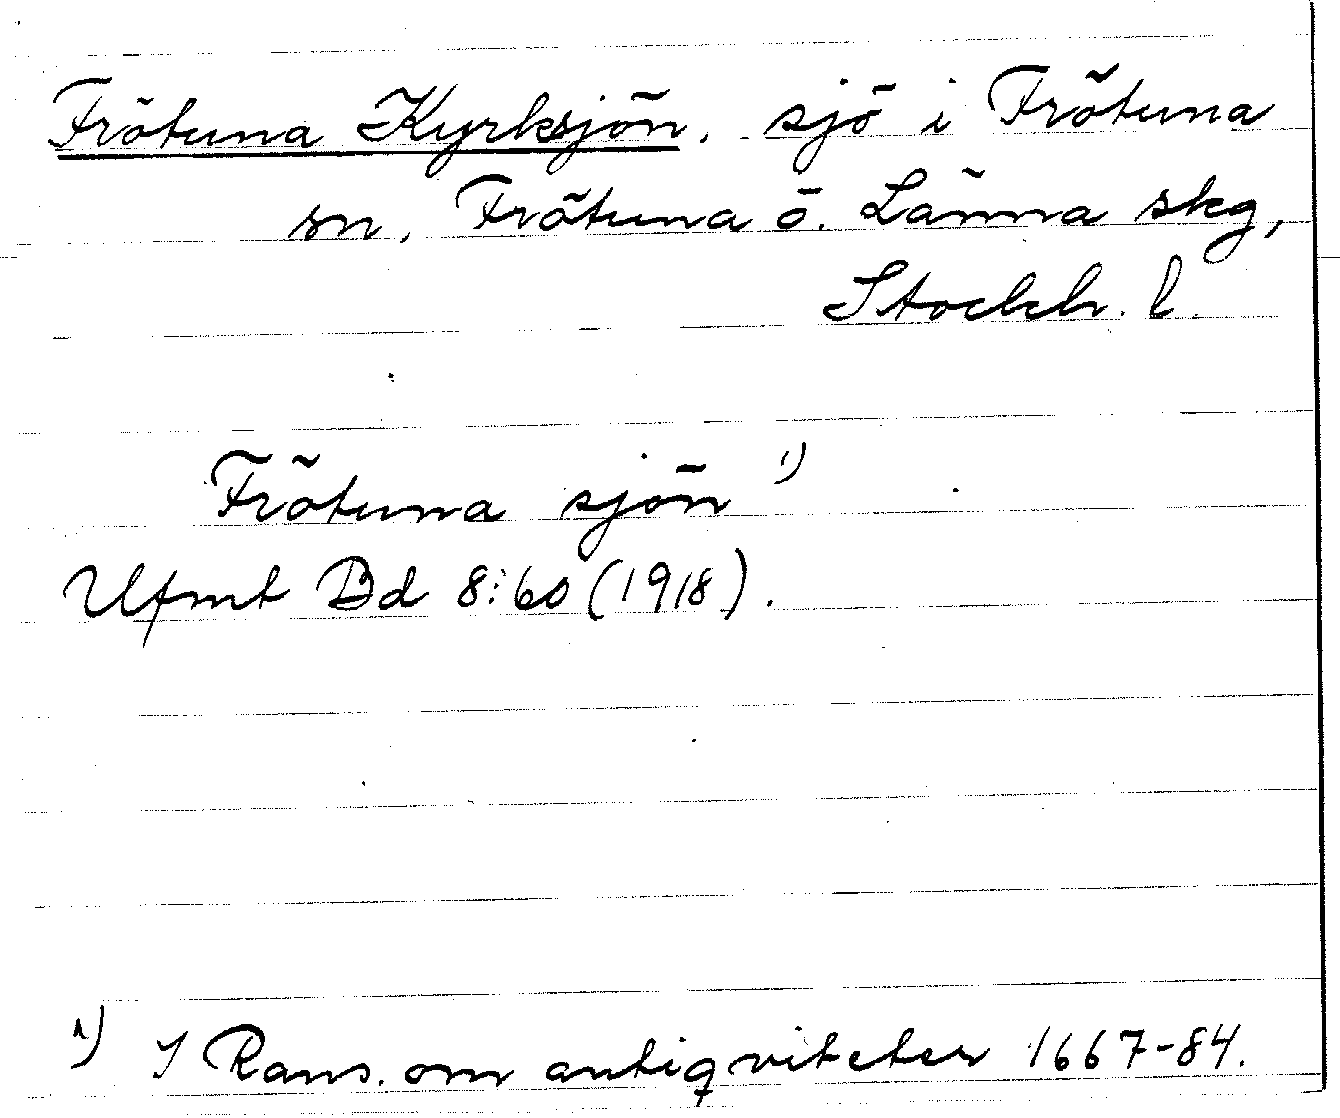 Frötuna Kyrksjön. sjö i Frötuna
sn, Frötuna o. Länna skg,
Stockh. l.
Frötuna sjön 1)
Ufmt Bd 8:60 (1918).
1) I Rans. om antiqviteter 1667-84.